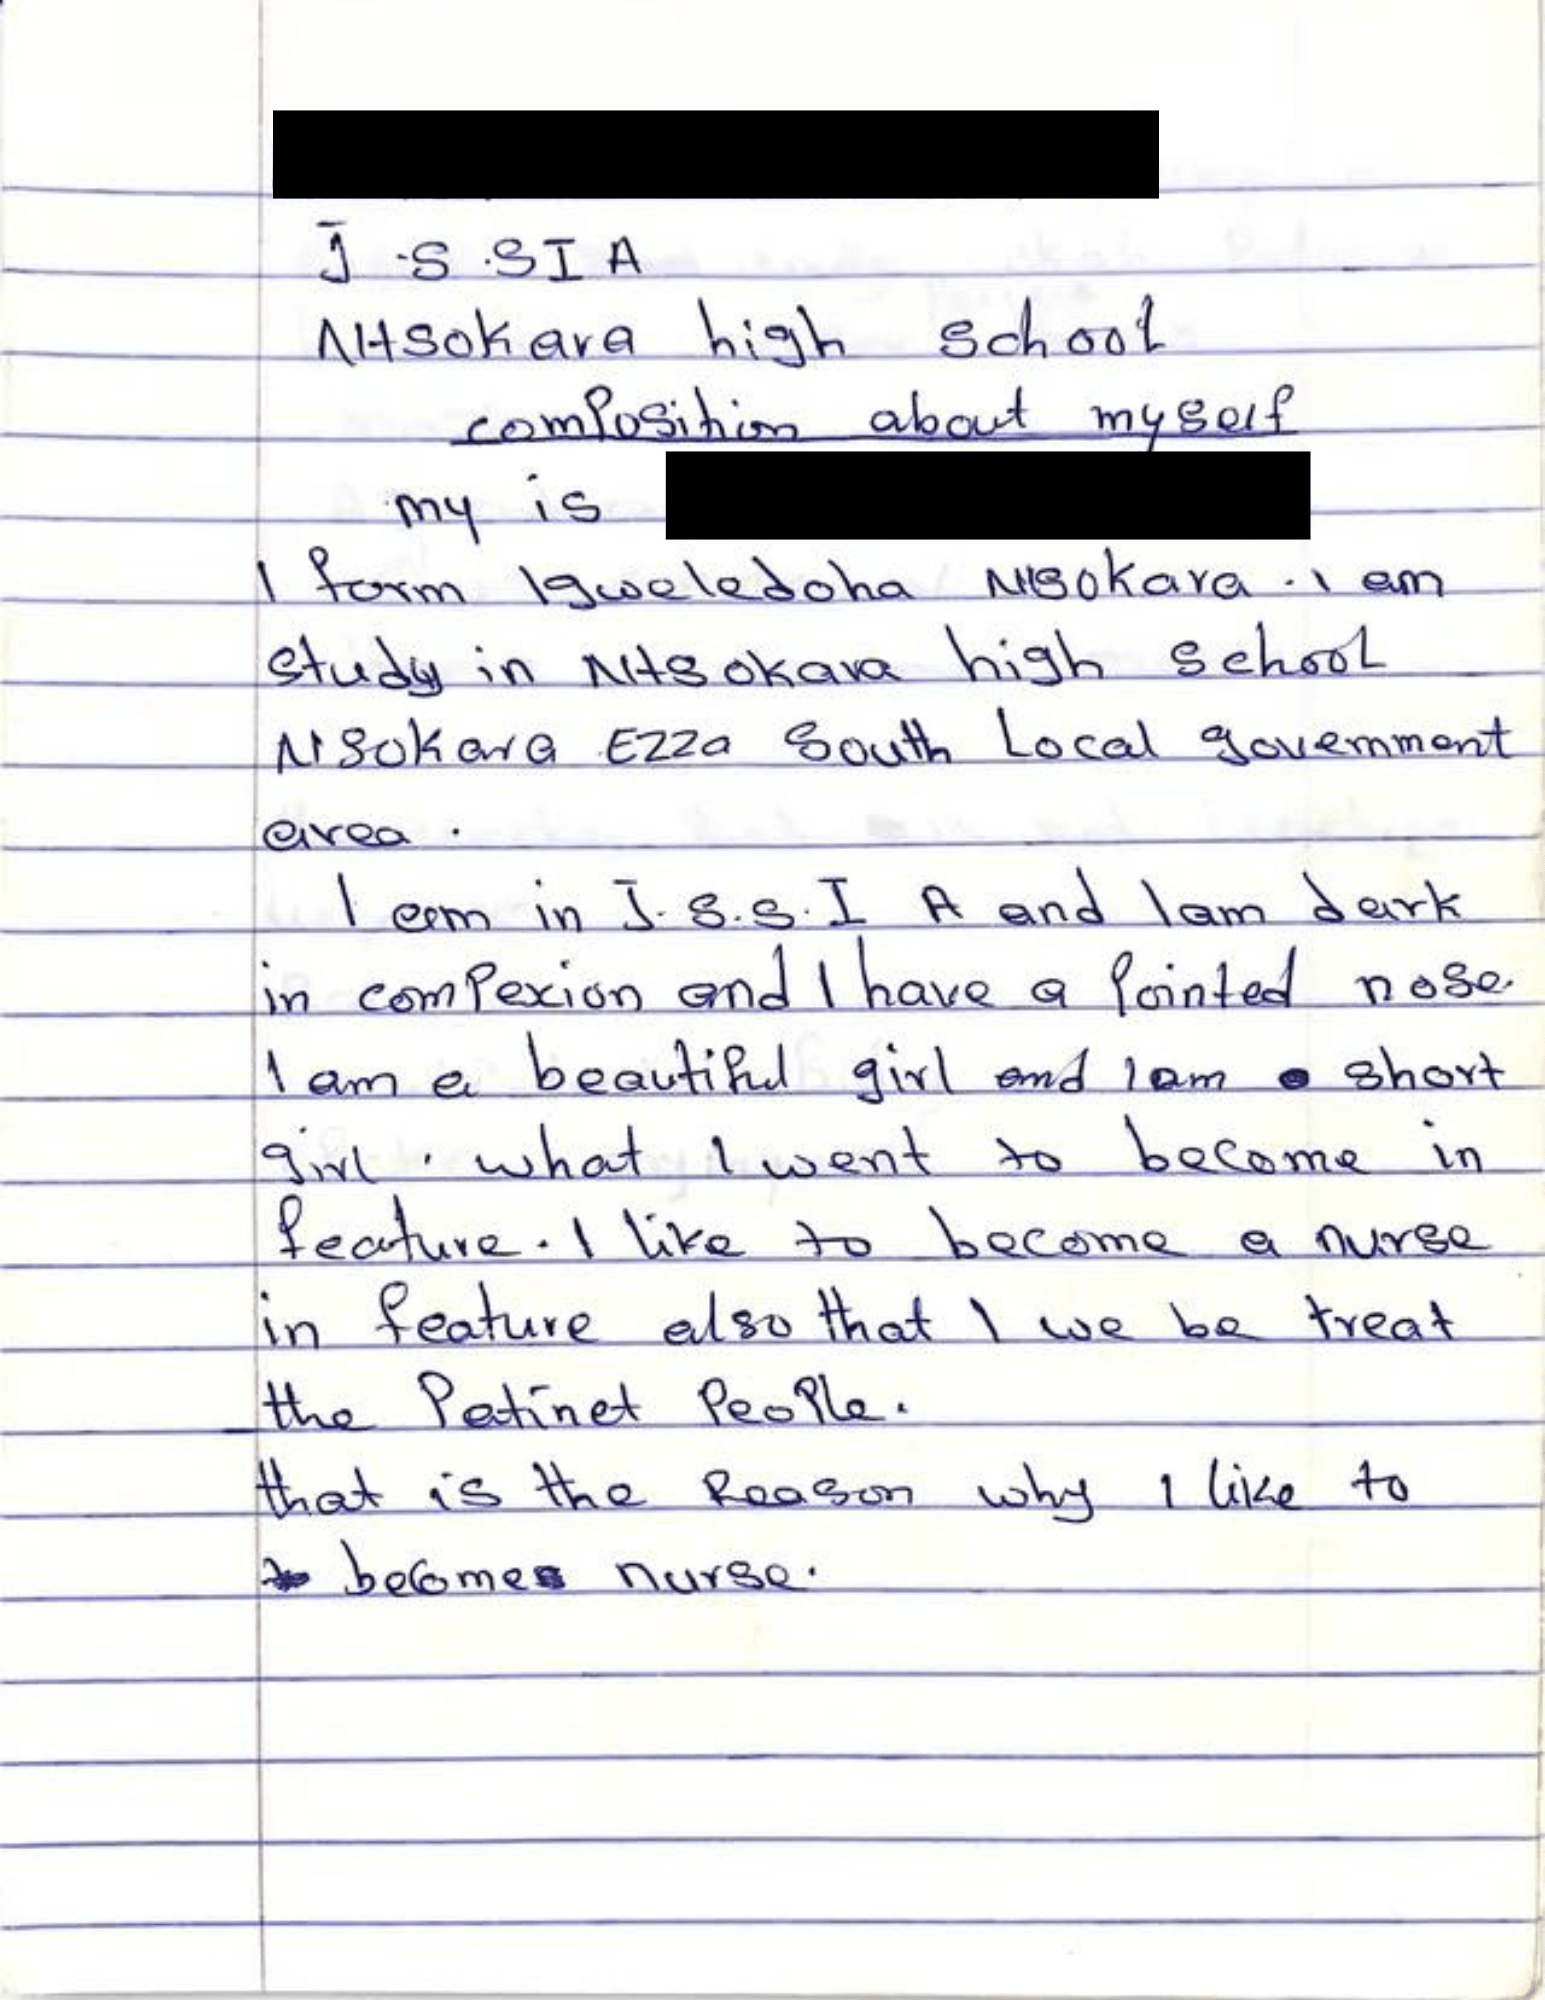 J.S.SIA
NHSokara high school
composition about myself
my is
I form Igweledoha NISokara. I am
study in NHSokara high school
NISokara Ezza South Local government
area.
I am in J.S.S.I A and I am dark
in compexion and I have a pointed nose.
I am a beautiful girl and I am short
girl. what I went to become in
feature. I like to become a nurse
in feature also that I we be treat
the Patinet People.
that is the Reason why I like to
become nurse.